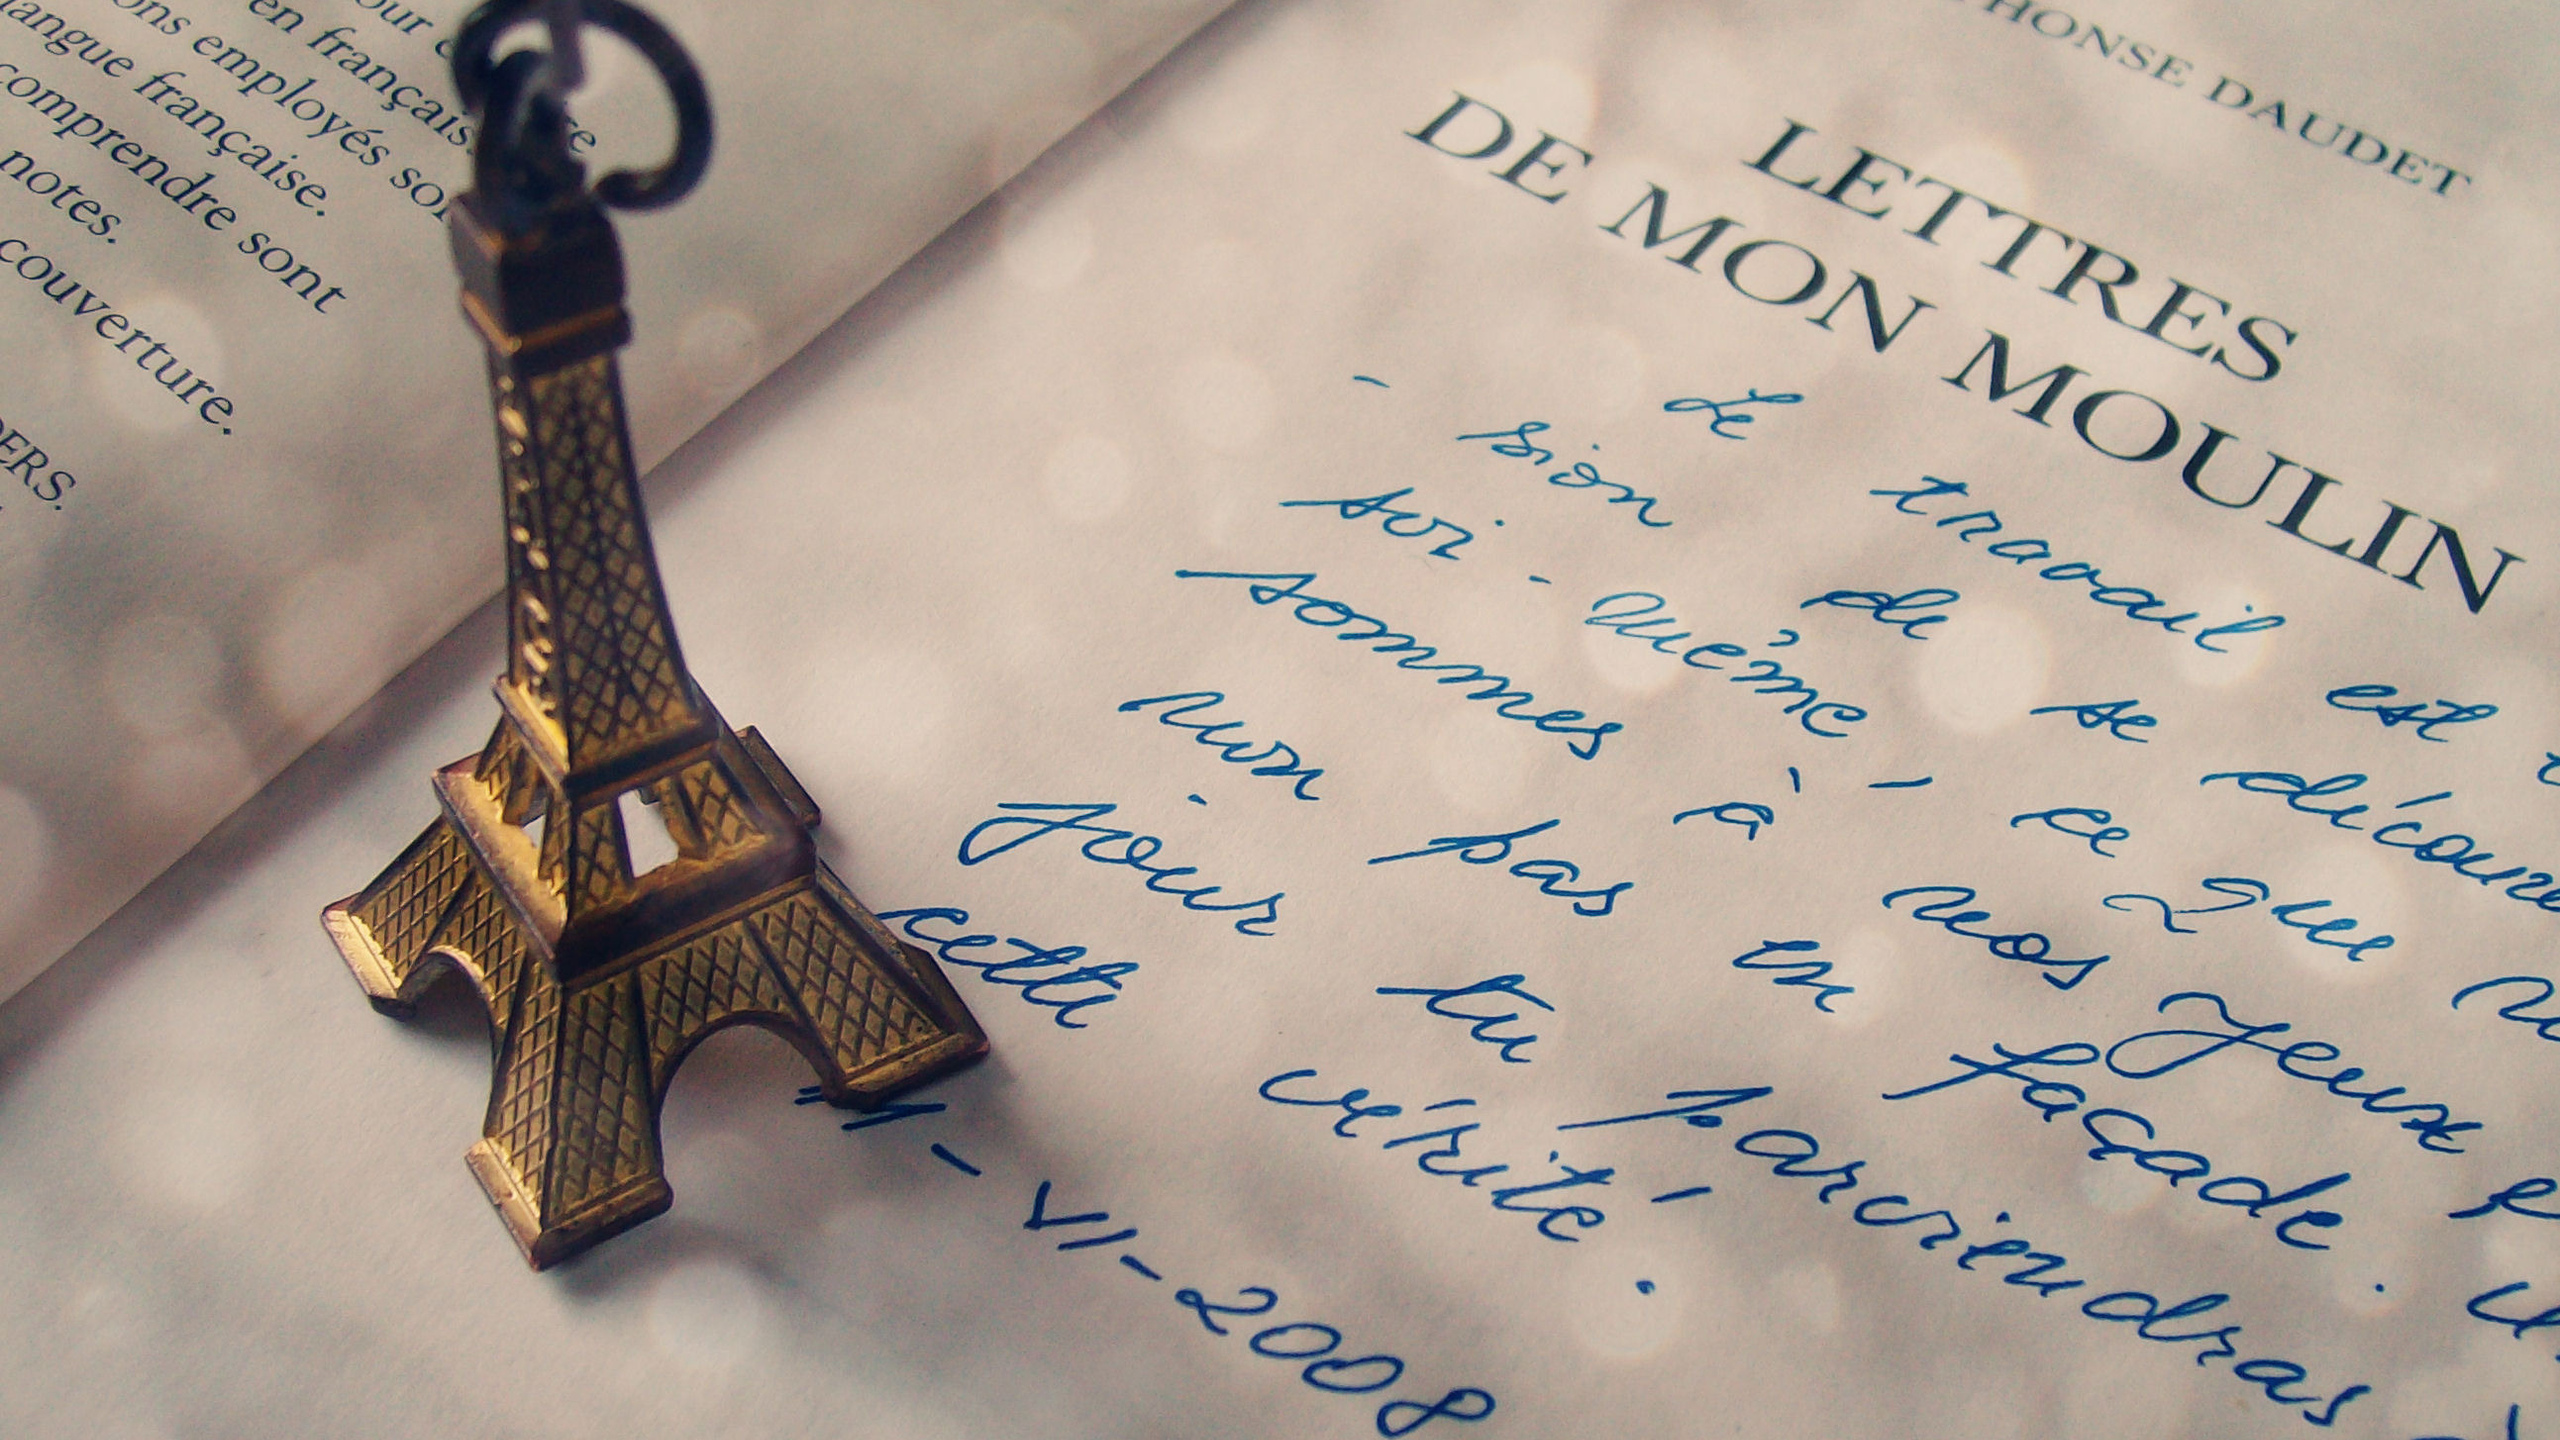 our
en français.
ons employés
langue française.
comprendre sont
notes.
couverture.
DERS.
PHONSE DAUDET
LETTRES
DE MON MOULIN
- Le travail est
sion de se découvr
soi-même, ce que
sommes à nos yeux
non pas en façade.
jour tu parviendras
cette vérité.
VII-2008